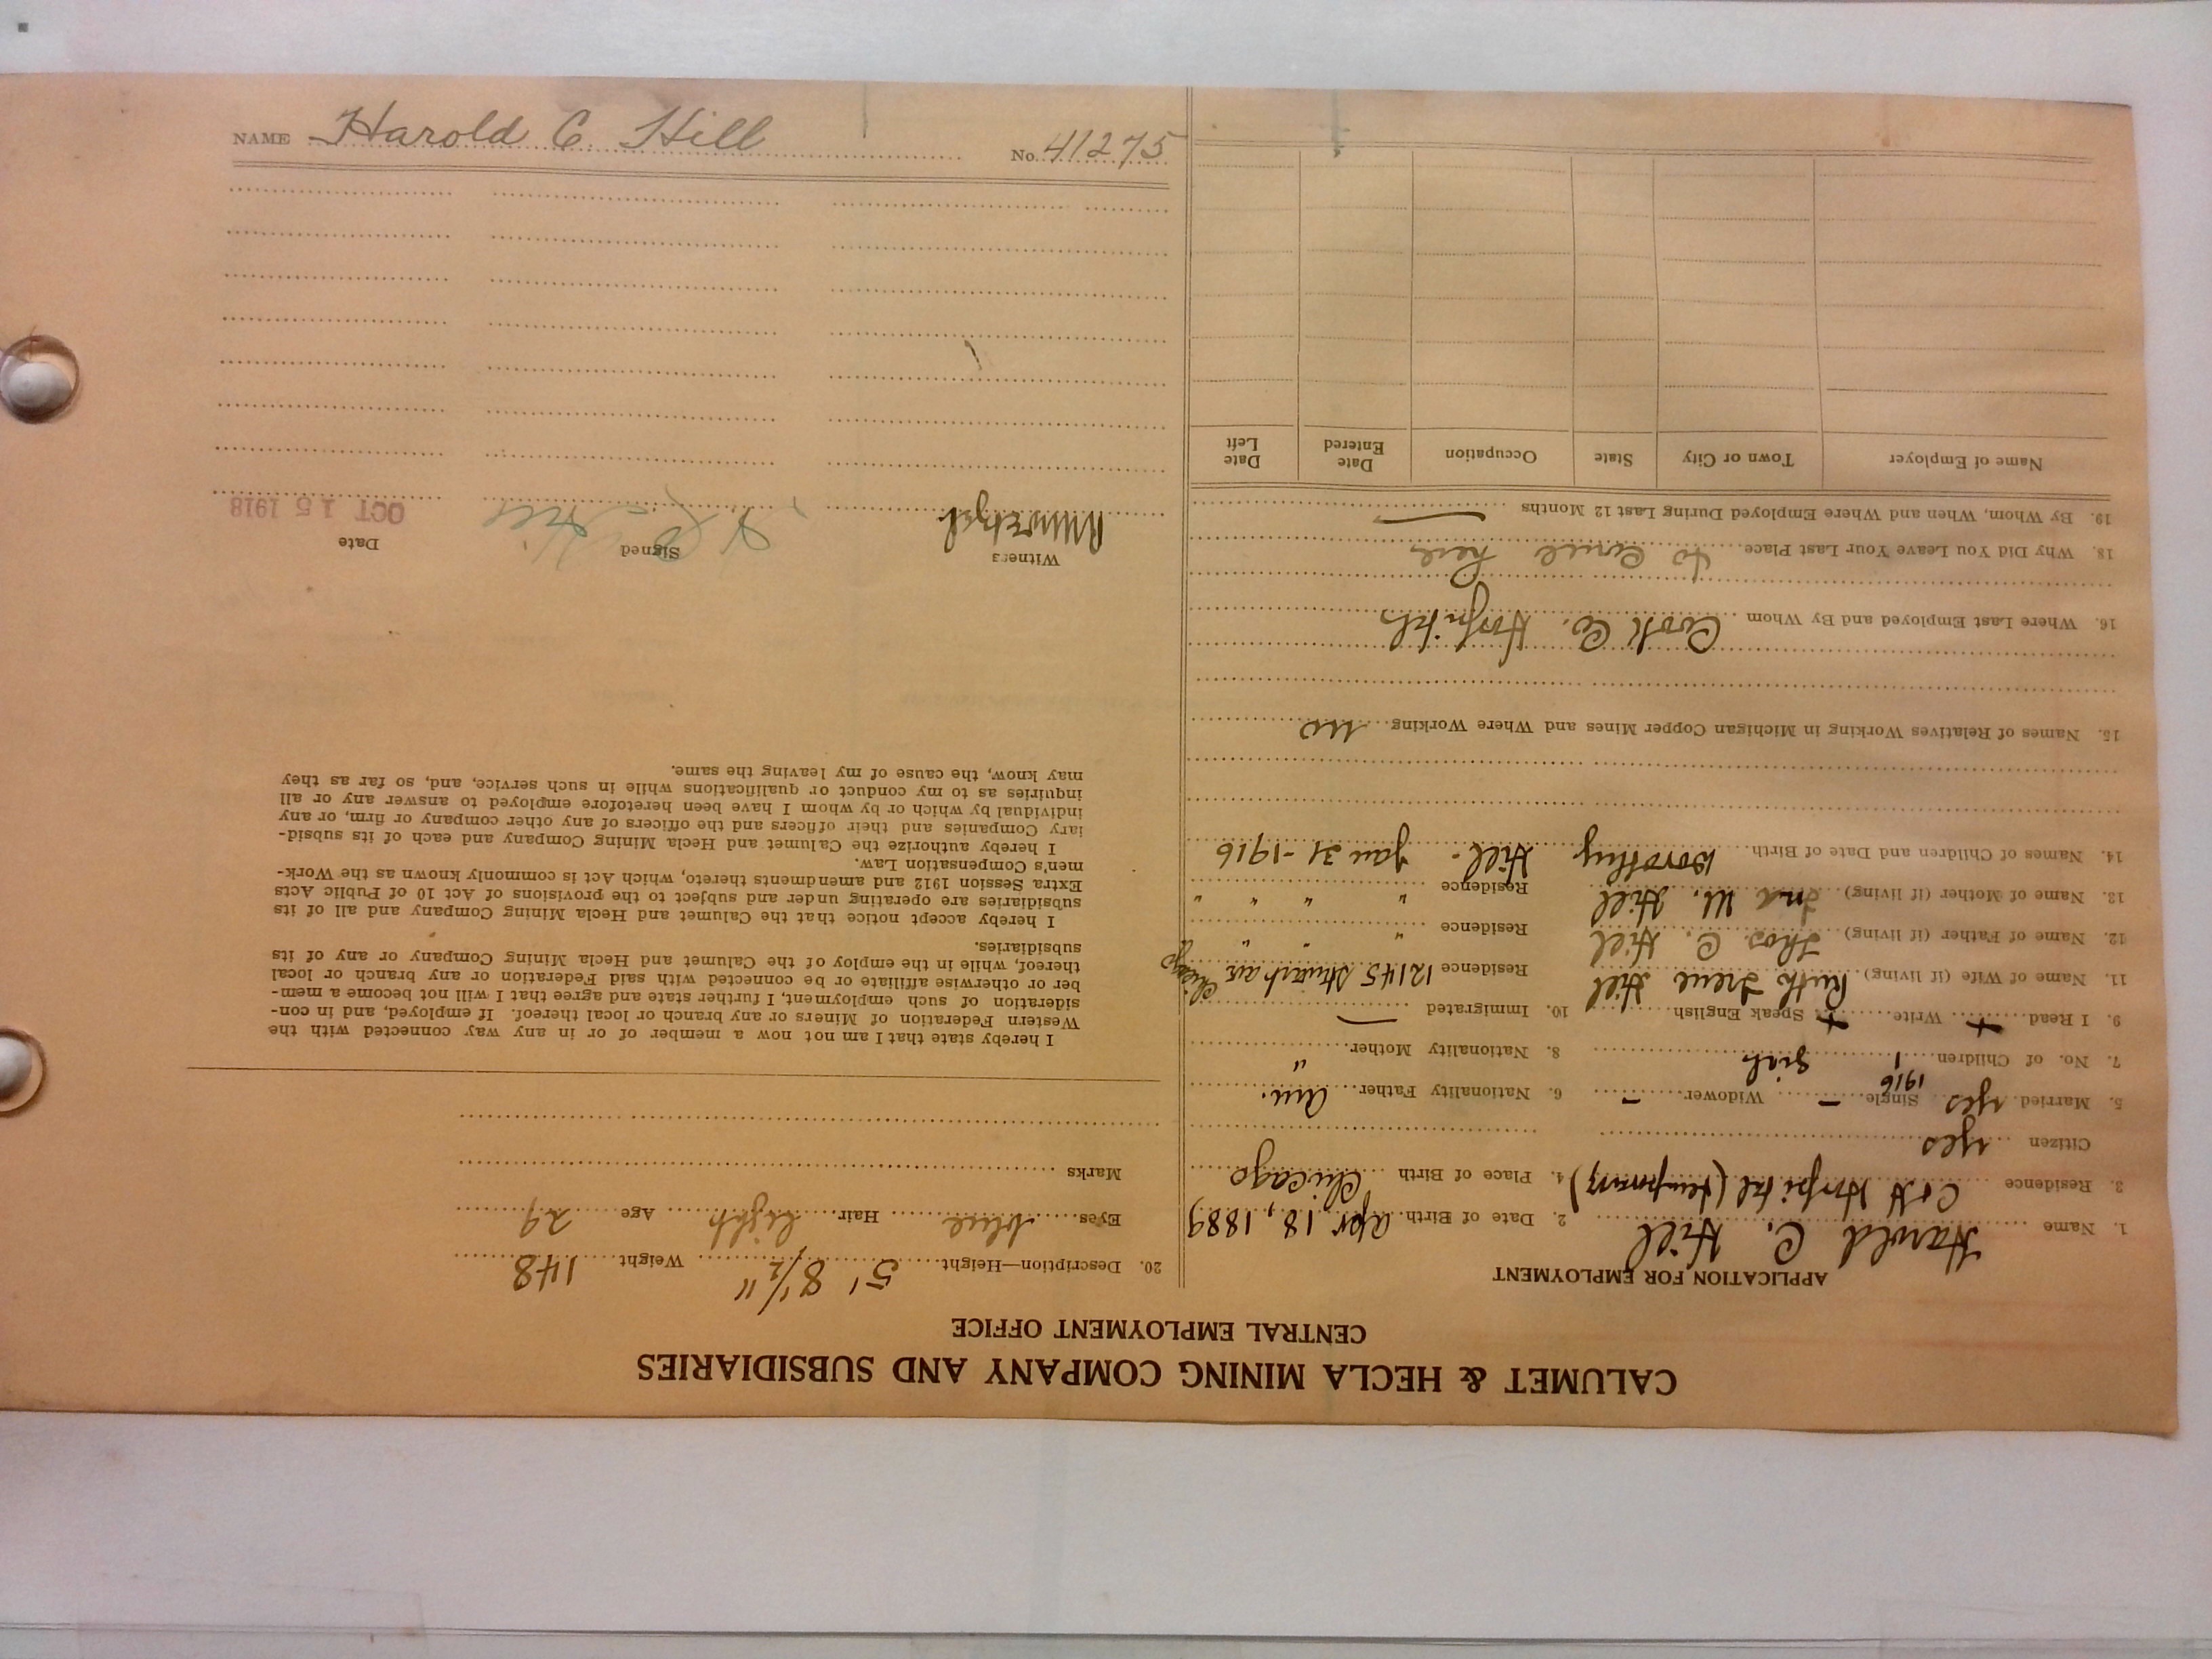 CALUMET & HECLA MINING COMPANY AND SUBSIDIARIES
CENTRAL EMPLOYMENT OFFICE
APPLICATION FOR EMPLOYMENT
1. Name Harold C. Hill 2. Date of Birth Apr 18, 1889
3. Residence C & H Hospital (temporary) 4. Place of Birth Chicago
Citizen yes
5. Married yes 1916 Single – Widower – 6. Nationality Father Am.
7. No. of Children 1 girl 8. Nationality Mother "
9. I Read + Write + Speak English 10. Immigrated —
11. Name of Wife (if living) Ruth Irene Hill Residence 12145 Stewart av Chicago
12. Name of Father (if living) Thos. C. Hill Residence " " " "
13. Name of Mother (if living) Ina M. Hill Residence " " " "
14. Names of Children and Date of Birth Dorothy Hill - Jan 31 - 1916
15. Names of Relatives Working in Michigan Copper Mines and Where Working no
16. Where Last Employed and By Whom Cook Co. Hospital
18. Why Did You Leave Your Last Place to come here
19. By Whom, When and Where Employed During Last 12 Months —
Name of Employer Town or City State Occupation Date Entered Date Left
20. Description—Height 5' 8 1/2" Weight 148
Eyes blue Hair light Age 29
Marks
I hereby state that I am not now a member of or in any way connected with the
Western Federation of Miners or any branch or local thereof. If employed, and in con-
sideration of such employment, I further state and agree that I will not become a mem-
ber or otherwise affiliate or be connected with said Federation or any branch or local
thereof, while in the employ of the Calumet and Hecla Mining Company or any of its
subsidiaries.
I hereby accept notice that the Calumet and Hecla Mining Company and all of its
subsidiaries are operating under and subject to the provisions of Act 10 of Public Acts
Extra Session 1912 and amendments thereto, which Act is commonly known as the Work-
men's Compensation Law.
I hereby authorize the Calumet and Hecla Mining Company and each of its subsid-
iary Companies and their officers and the officers of any other company or firm, or any
individual by which or by whom I have been heretofore employed to answer any or all
inquiries as to my conduct or qualifications while in such service, and, so far as they
may know, the cause of my leaving the same.
Witness Signed Date
H C Hill OCT 15 1918
NAME Harold C. Hill No. 41275